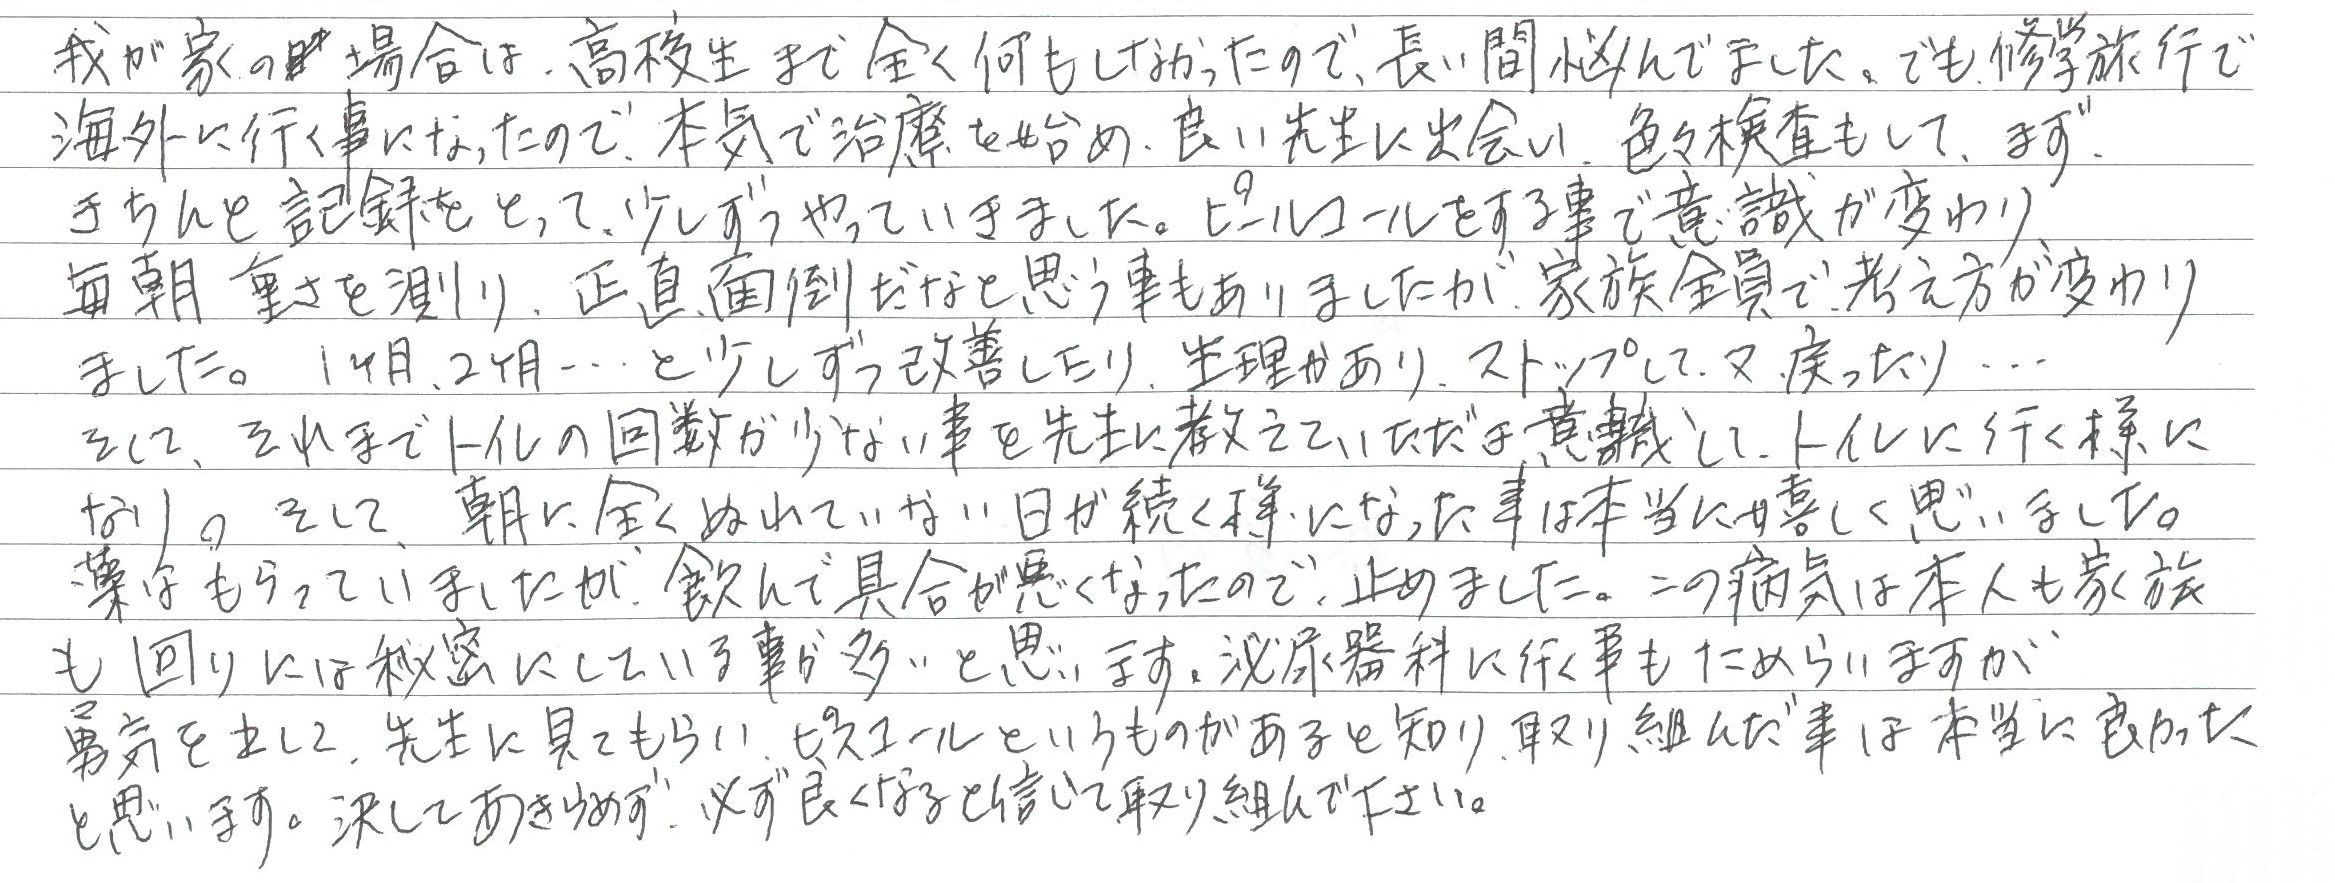 我が家の場合は、高校生まで全く何もしなかったので、長い間悩んでました。でも、修学旅行で
海外に行く事になったので、本気で治療を始め、良い先生に出会い、色々検査もして、まず、
きちんと記録をとって、少しずつやっていきました。ピールコールをする事で意識が変わり、
毎朝重さを測り、正直、面倒だなと思う事もありましたが、家族全員で、考え方が変わり
ました。1ヶ月、2ヶ月…と少しずつ改善したり、生理があり、ストップして、又、戻ったり…
そして、それまでトイレの回数が少ない事を先生に教えていただき、意識して、トイレに行く様に
なり。そして、朝に全くぬれていない日が続く様になった事は本当に嬉しく思いました。
薬はもらっていましたが、飲んで具合が悪くなったので、止めました。この病気は本人も家族
も回りには秘密にしている事が多いと思います。泌尿器科に行く事もためらいますが
勇気を出して、先生に見てもらい、ピスコールというものがあると知り、取り組んだ事は本当に良かった
と思います。決してあきらめず、必ず良くなると信じて取り組んで下さい。